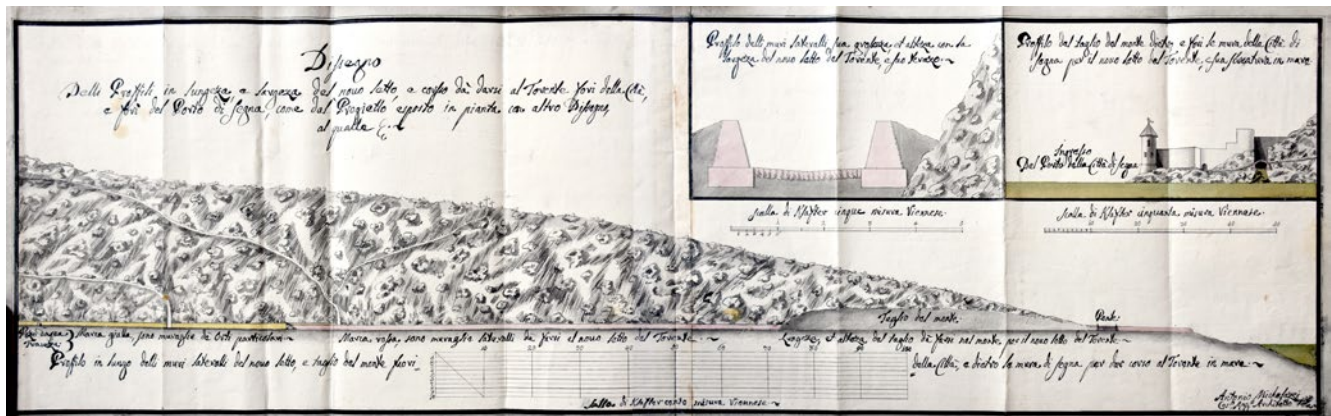 Disegno
Delli Proffili in lungeza e largeza del nouo letto, e corso dà darsi al Torente fori della Cità,
e fori del Porto di Segna, come dal Progietto esposto in pianta con altro Disegno,
al qualle &c.
Proffilo delli muri laterali, sua groseza, et alteza con la
largeza del nouo letto del Torente, e suo
Proffilo del taglio del monte dietro, e fori le mura della Città di
Segna per il nouo letto del Torente, e sua in mare
Ingresso
Del Porto della Città di Segna
scalla di Klafter cinque misura Viennese.
scalla di Klafter cinquanta misura Viennese.
Taglio del monte.
Ponte.
Marca gialla, sono muraglie de Orti particolari
Marca rossa, sono muraglie laterali dà farsi al nouo letto del Torente
et alteza del taglio dà farsi nel monte per il nouo letto del Torente
Proffilo in lungo delli muri laterali del nouo letto, e taglio del monte fuori
della Città, e dietro le mura di Segna per dar corso al Torente in mare
10 20 30 40 50 60 70 80 90 100
scalla di Klafter cento misura Viennese
Antonio